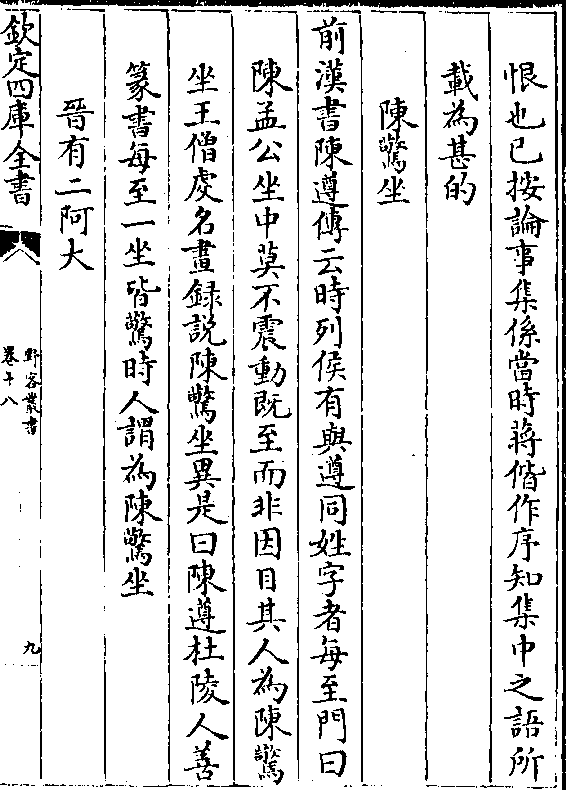 恨也已按論事集係當時蔣偕作序知集中之語所
載為甚的
陳驚坐
前漢書陳遵傳云時列侯有與遵同姓字者每至門曰
陳孟公坐中莫不震動既至而非因目其人為陳驚
坐王僧䖍名畫録説陳驚坐異是曰陳遵杜陵人善
篆書每至一坐皆驚時人謂為陳驚坐
晉有二阿大
欽定四庫全書
野客叢書
卷十八
九